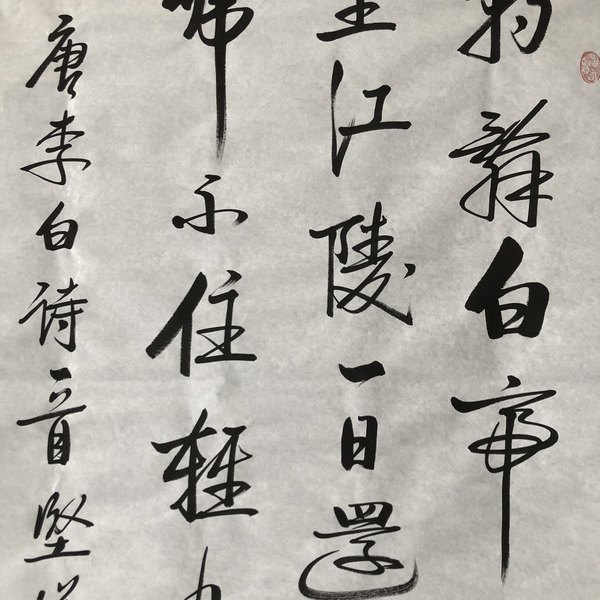 朝辭白帝
里江陵一日還
啼不住輕
唐李白诗一首堅